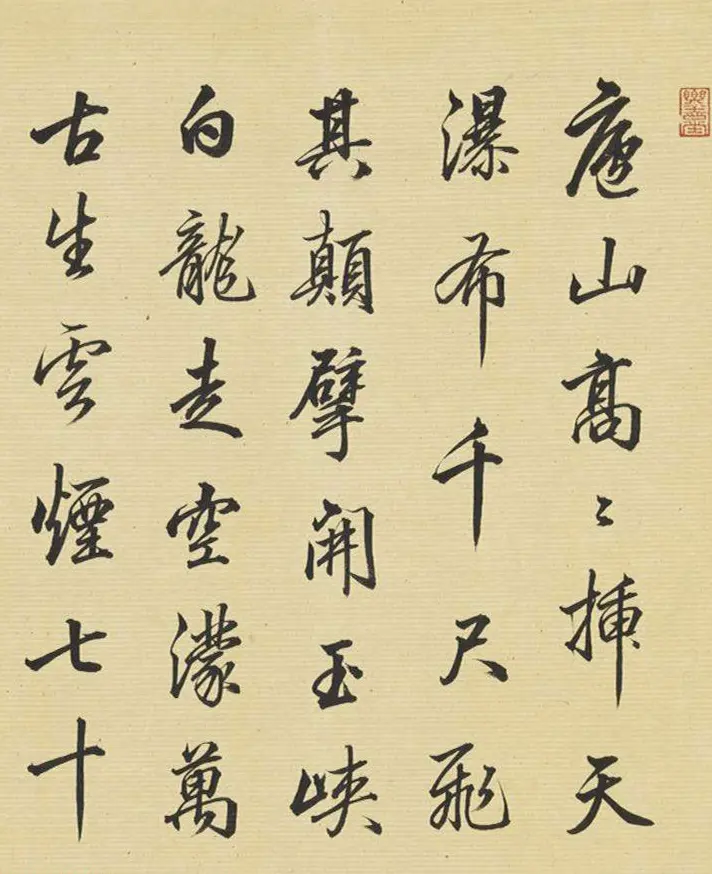 庐山高〻插天
瀑布千尺飛
其顛擘開玉峽
白龍走空濛萬
古生雲煙七十